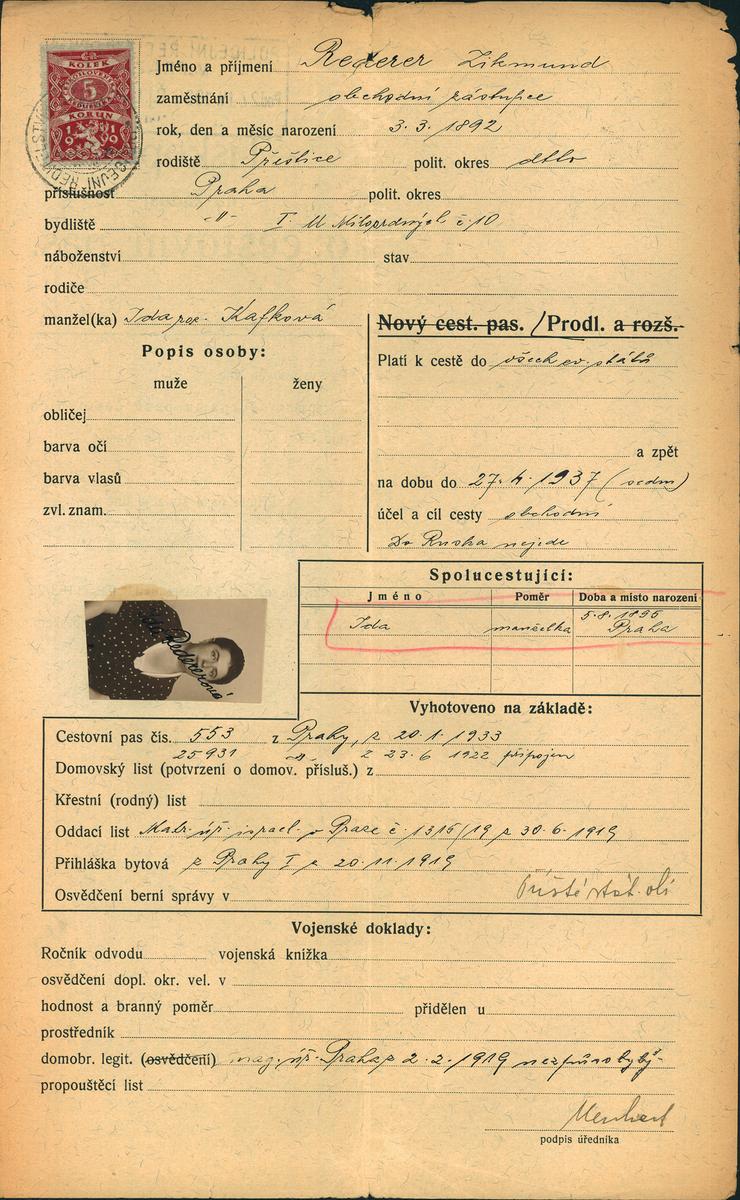 KOLEK
5
KORUN
1919
Jméno a příjmení Rederer Zikmund
zaměstnání obchodní zástupce
rok, den a měsíc narození 3. 3. 1892
rodiště Přeštice polit. okres dtto
příslušnost Praha polit. okres
bydliště -"- I. U Milosrdných č. 10
náboženství stav
rodiče
manžel(ka) Ida roz. Kafková
Nový cest. pas. / Prodl. a rozš.
Popis osoby:
muže ženy
Platí k cestě do všech ev. států
obličej
barva očí
a zpět
barva vlasů
na dobu do 27. 4. 1937 (sedm)
zvl. znam.
účel a cíl cesty obchodní
Do Ruska nejede
Spolucestující:
Jméno Poměr Doba a místo narození
5. 8. 1896
Ida manželka Praha
Ida Redererová
Vyhotoveno na základě:
Cestovní pas čís. 553 z Prahy, z 20. 1. 1933
25931 -"- z 23. 6 1922 připojen
Domovský list (potvrzení o domov. přísluš.) z
Křestní (rodný) list
Oddací list Matr. úř. israel. v Praze č. 1316/19 z 30. 6. 1919
Přihláška bytová z Prahy I z 20. 11. 1919
Osvědčení berní správy v
Příště stát. ob
Vojenské doklady:
Ročník odvodu vojenská knížka
osvědčení dopl. okr. vel. v
hodnost a branný poměr přidělen u
prostředník
domobr. legit. (osvědčení) mag. úř. Praha z 2. 2. /1919
propouštěcí list
podpis úředníka